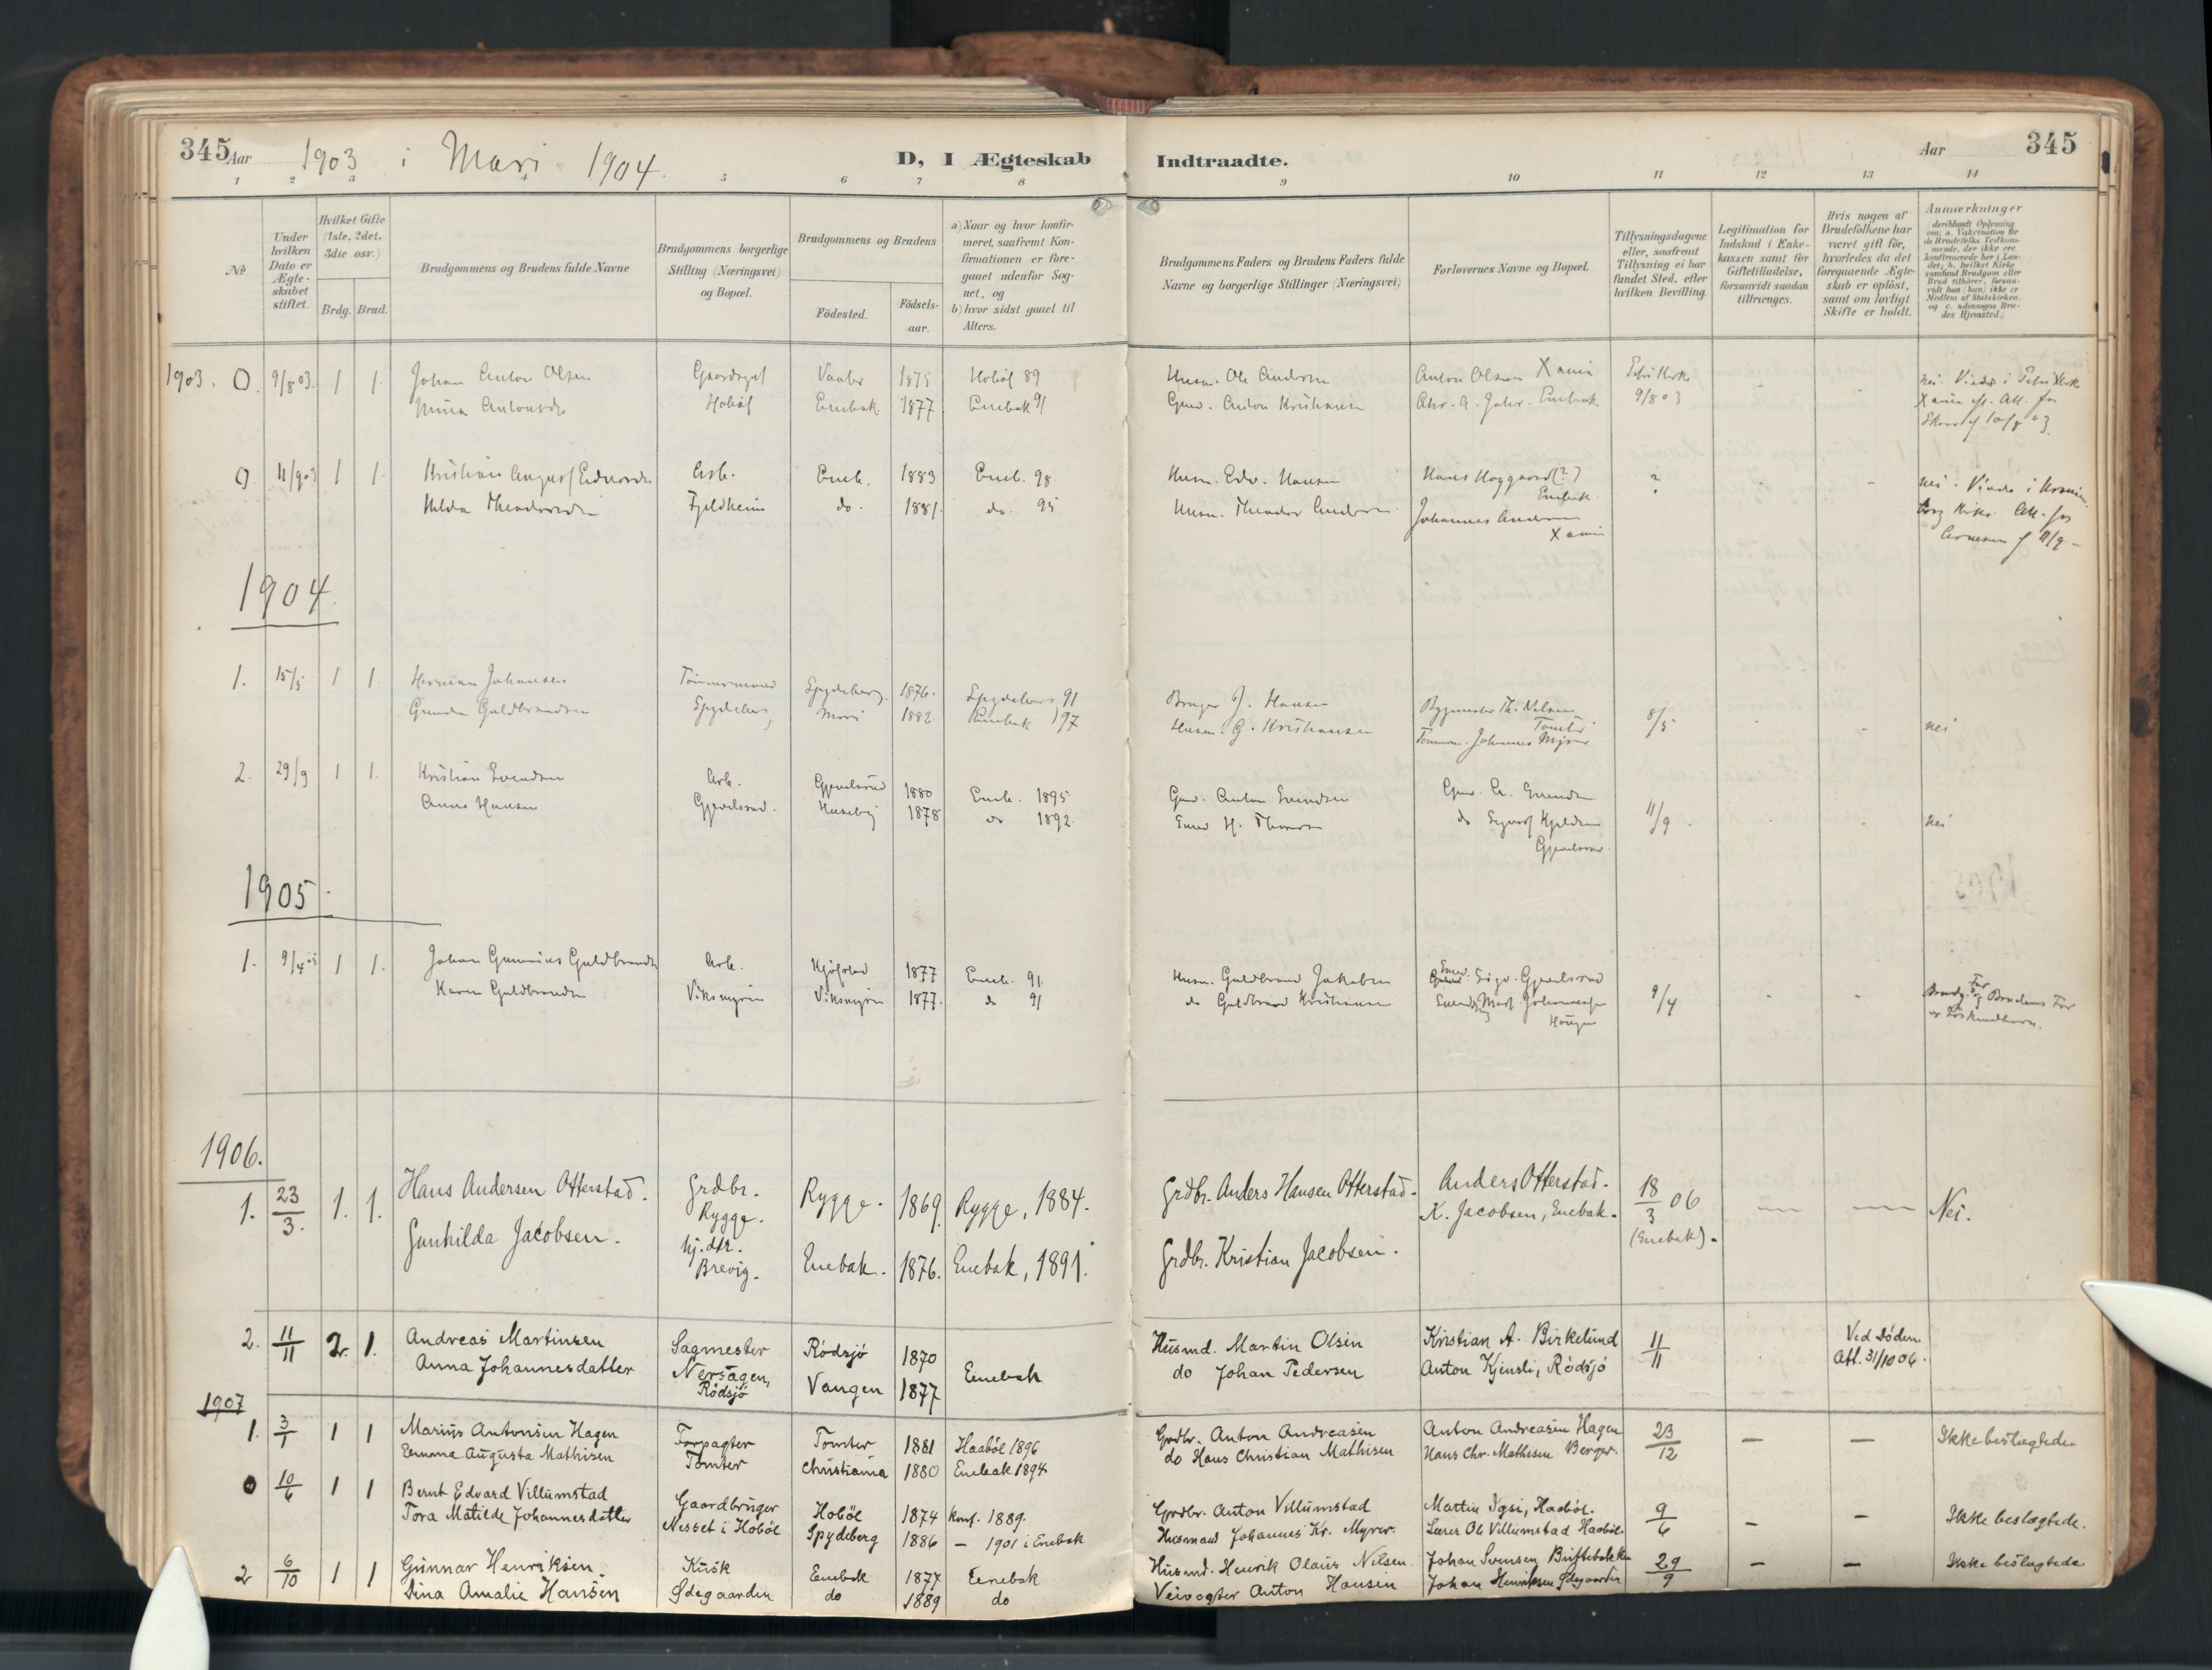 345 Aar 1903 i Mari 1904. D, I Ægteskab
Indtraadte. Aar 345
1 2 3 4 5 6 7 8
9 10 11 12 13 14
№
Under hvilken Dato er Ægte-skabet stiftet.
Hvilket Gifte (1ste, 2det, 3die osv.)
Brdg. Brud.
Brudgommens og Brudens fulde Navne
Brudgommens borgerlige Stilling (Næringsvei) og Bopæl.
Brudgommens og Brudens
Födested. Födsels-aar.
a) Naar og hvor konfir-
meret, saafremt Kon-
firmationen er fore-
gaaet udenfor Sog-
net, og
b) hvor sidst gaaet til
Alters.
Brudgommens Faders og Brudens Faders fulde
Navne og borgerlige Stillinger (Næringsvei)
Forlovernes Navne og Bopæl.
Tillysningsdagene
eller, saafremt
Tillysning ei har
fundet Sted, efter
hvilken Bevilling.
Legitimation for
Indskud i Enke-
kassen samt for
Giftetilladelse,
forsaavidt saadan
tiltrænges.
Hvis nogen af
Brudefolkene har
været gift før,
hvorledes da det
foregaaende Ægte-
skab er oplöst,
samt om lovligt
Skifte er holdt.
Anmærkninger
deriblandt Oplysning
om: a. Vakcination for
de Brudefolks Vedkom-
mende, der ikke ere
konfirmerede her i Lan-
det; b. hvilket Kirke-
samfund Brudgom eller
Brud tilhører, forsaa-
vidt han (hun) ikke er
Medlem af Statskirken.
og c. udensogns Bru-
des Hjemsted.
1903. O. 9/8 03. 1 1. Johan Anton Olsen Vaaler 1875 Hobøl 89
Hobøl Enebak. 1877 Enebak 91
Husm. Ole Andersen Anton Olsen Xania
Gmd. Anton Kristiansen Enebak 9/8 03
O 11/9 03 1 1. Arb. Eneb. 1883 Eneb. 98
Hilda Theodorsdn Fjeldheim do. 1881. do. 95
Husm. Edv. Hansen Hans Hoggaard (?) Enebak
Husm. Theodor Andersen Johannes Andersen Xania
1904.
1. 15/5 1 1. Herman Johansen Tömmermand Spydeberg. 1876. Spydeberg 91
Gunda Guldbrandsen Spydeberg Mari 1882. Enebak 97
Bruger J. Hansen Bygmester Th. Nilsen Tomter 8/5 nei
Husm. G. Kristiansen Tömmerm. Johannes
2. 29/9 1 1. Kristian Svendsen Arb. Gjevelsrud 1880 Eneb. 1895
Anna Hansen Gjevelsrud. Huseby 1878 do 1892.
Gmd. Anton Svendsen Gmd. A. Svendsen 11/9 nei
H. Thorersen do Sigvart Kjeldsen Gjevelsrud.
1905.
1. 9/4 05 1 1. Johan Gunerius Guldbrands Arb. 1877 Eneb. 91.
Karen Guldbrandsn Viksmyren Viksmyren 1877. do 91
Husm. Guldbrand Jakobsen Sigv. Gjevelsrud 9/4
do Guldbrand Kristiansen
Brudg. Far og Brudens Far
er Söskendbarn.
1906.
1. 23/3. 1. 1. Hans Andersen Otterstad. Grdbr. Rygge. Rygge. 1869. Rygge, 1884.
Gunhilda Jacobsen. hj. dtr. Brevig. Enebak. 1876. Enebak, 1891.
Grdbr. Anders Hansen Otterstad. Anders Otterstad. 18/3 06 — — Nei.
Grdbr. Kristian Jacobsen. K. Jacobsen, Enebak. (Enebak).
2. 11/11 2. 1. Andreas Martinsen Sagmester Rödsjö 1870
Anna Johannesdatter Nersagen, Rödsjö Vangen 1877 Enebak
Husmd. Martin Olsen Kristian A. Birkelund 11/11 Ved Döden.
do Johan Pedersen Anton Kjensli, Rödsjö Att. 31/10 06.
1907
1. 3/1 1 1 Marius Antonsen Hagen Forpagter Tomter 1881 Haaböl 1896
Emma Augusta Mathisen Tomter Christiania 1880 Enebak 1894
Grdbr. Anton Andreasen Anton Andreasen Hagen 23/12 — — Ikke beslægtede
do Hans Christian Mathisen Hans Chr. Mathisen Berger.
0 10/6 1 1 Bernt Edvard Villumstad Gaardbruger Hoböl 1874 Konf. 1889.
Tora Matilde Johannesdatter Nesset i Hoböl Spydeberg 1886 — 1901 i Enebak
Grdbr. Anton Villumstad Martin Igsi, Haaböl. 9/6 — — Ikke beslægtede.
Husmand Johannes Kr. Myrer. Lærer Ole Villumstad Haaböl.
2 6/10 1 1 Gunnar Henriksen Kusk Enebak 1877 Enebak
Dina Amalie Hansen Ødegaarden do 1889 do
Husmd. Henrik Olaus Nilsen Johan Svensen 29/9 — — Ikke beslægtede
Veivogter Anton Hansen Johan Henriksen Ødegaarden